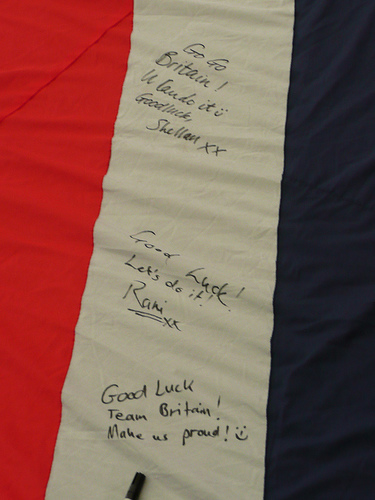 Go Go
Britain!
U can do it☺
Goodluck,
Shellan xx
Good Luck!
Let's do it!!
Rani
xx
Good Luck
Team Britain!
Make us proud! ☺